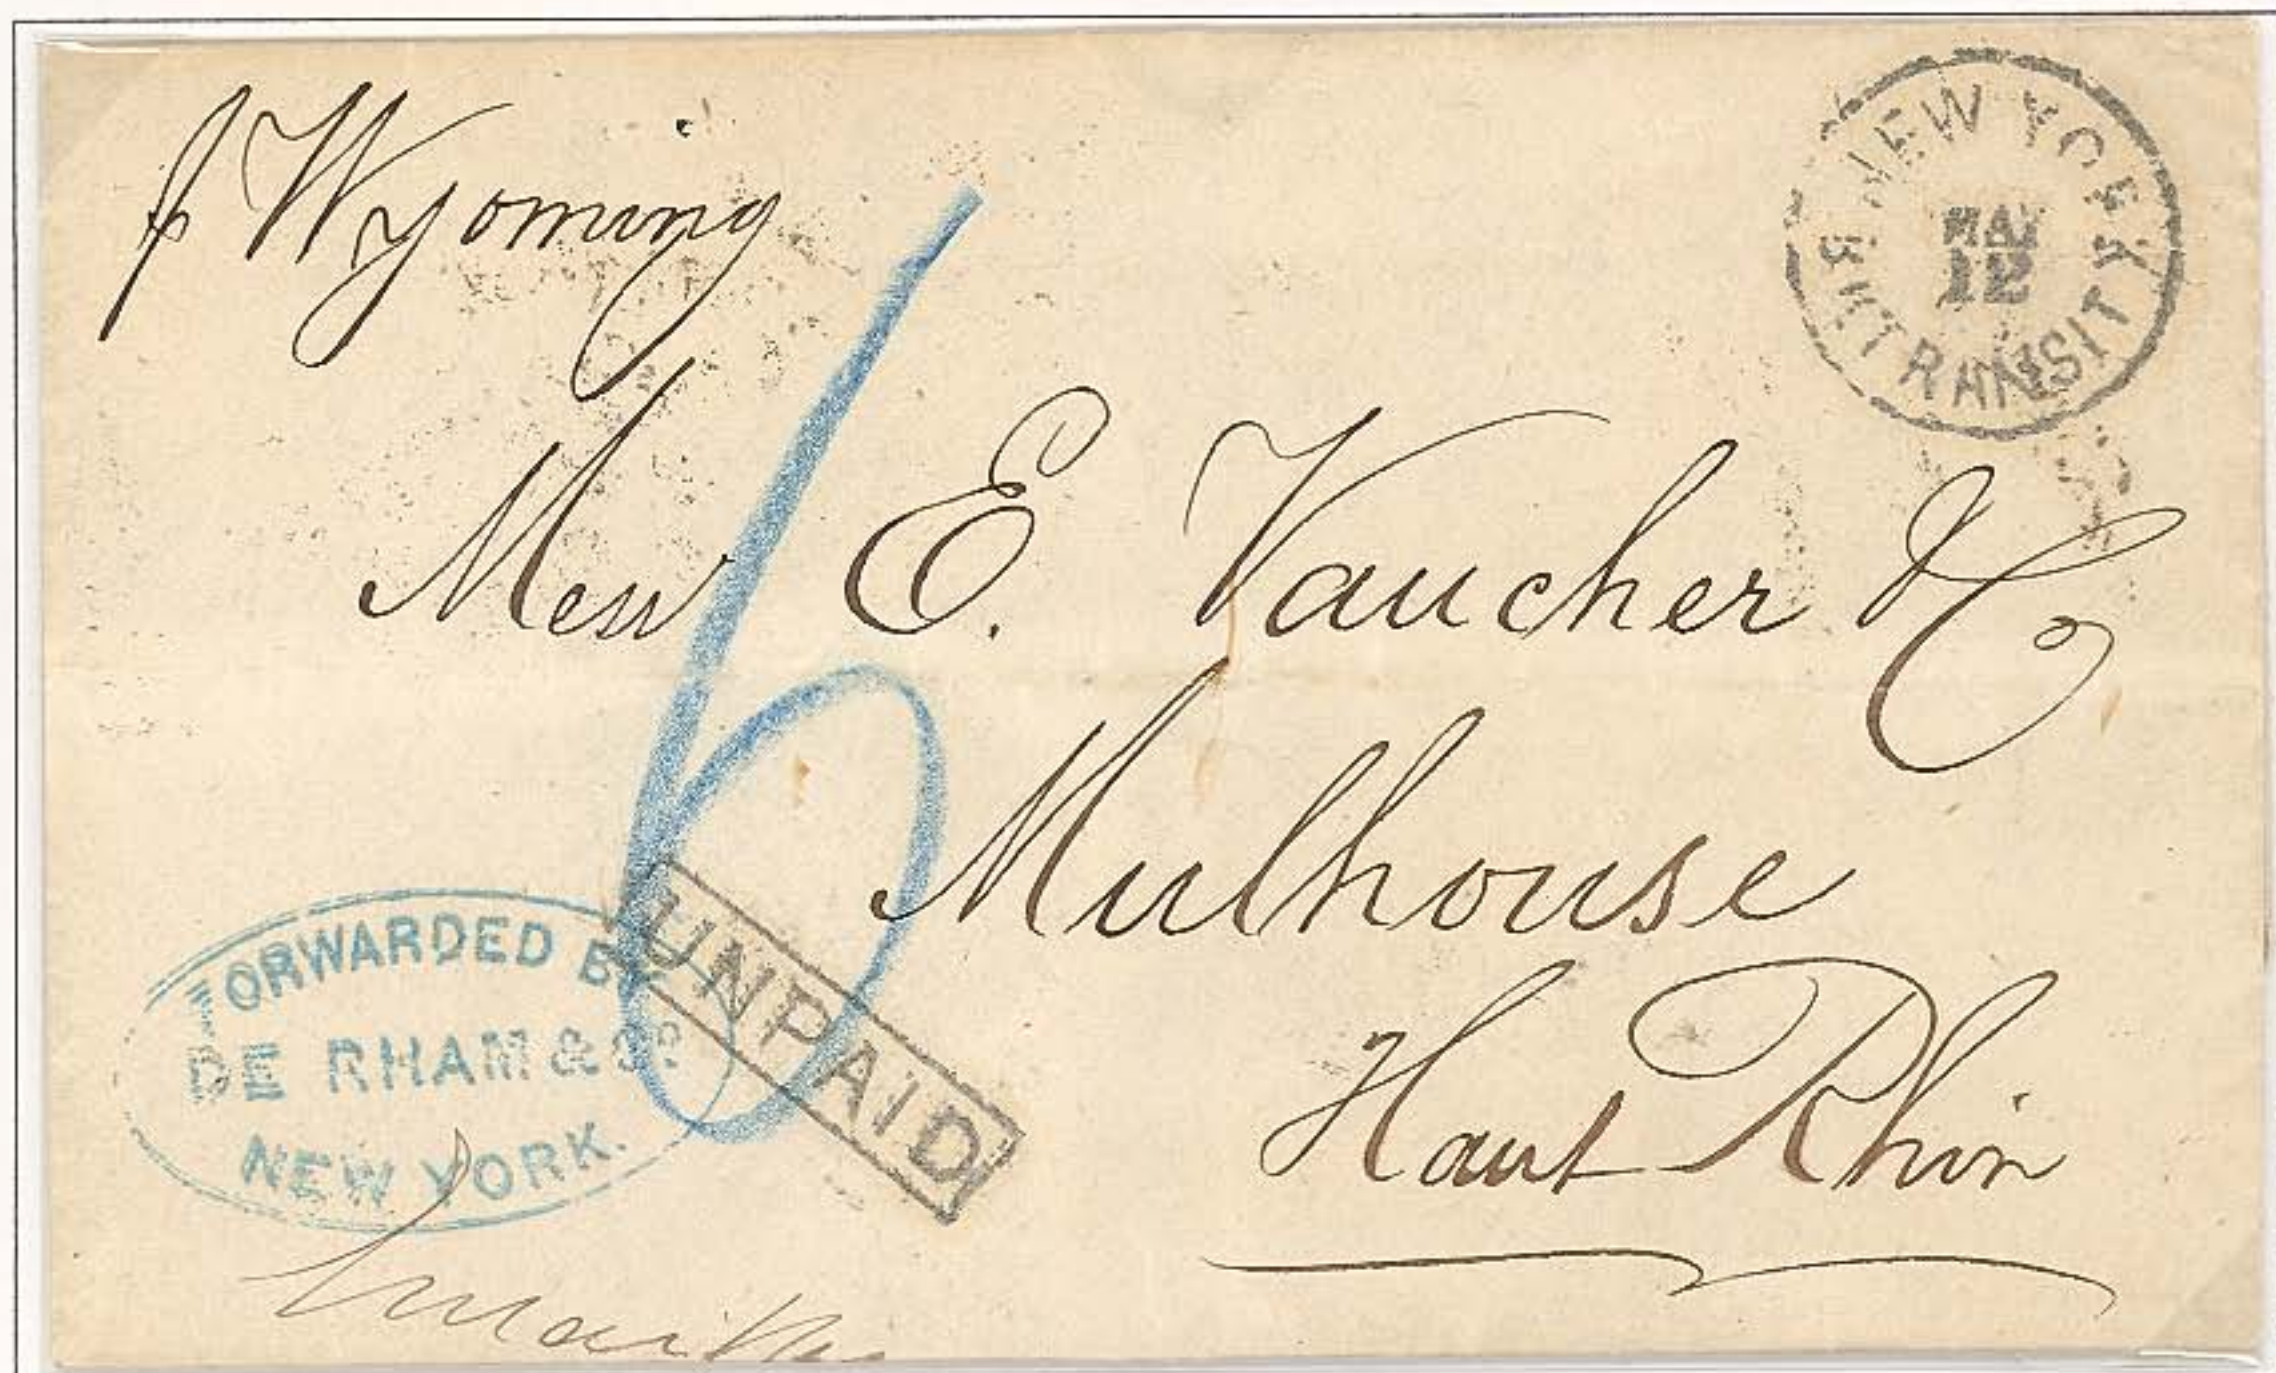 p Wyoming
NEW YORK
MAY
12
BR. TRANSIT
Mess E. Vaucher & Co
Mulhouse
Haut Rhin
6
UNPAID
FORWARDED BY
DE RHAM & Co
NEW YORK.